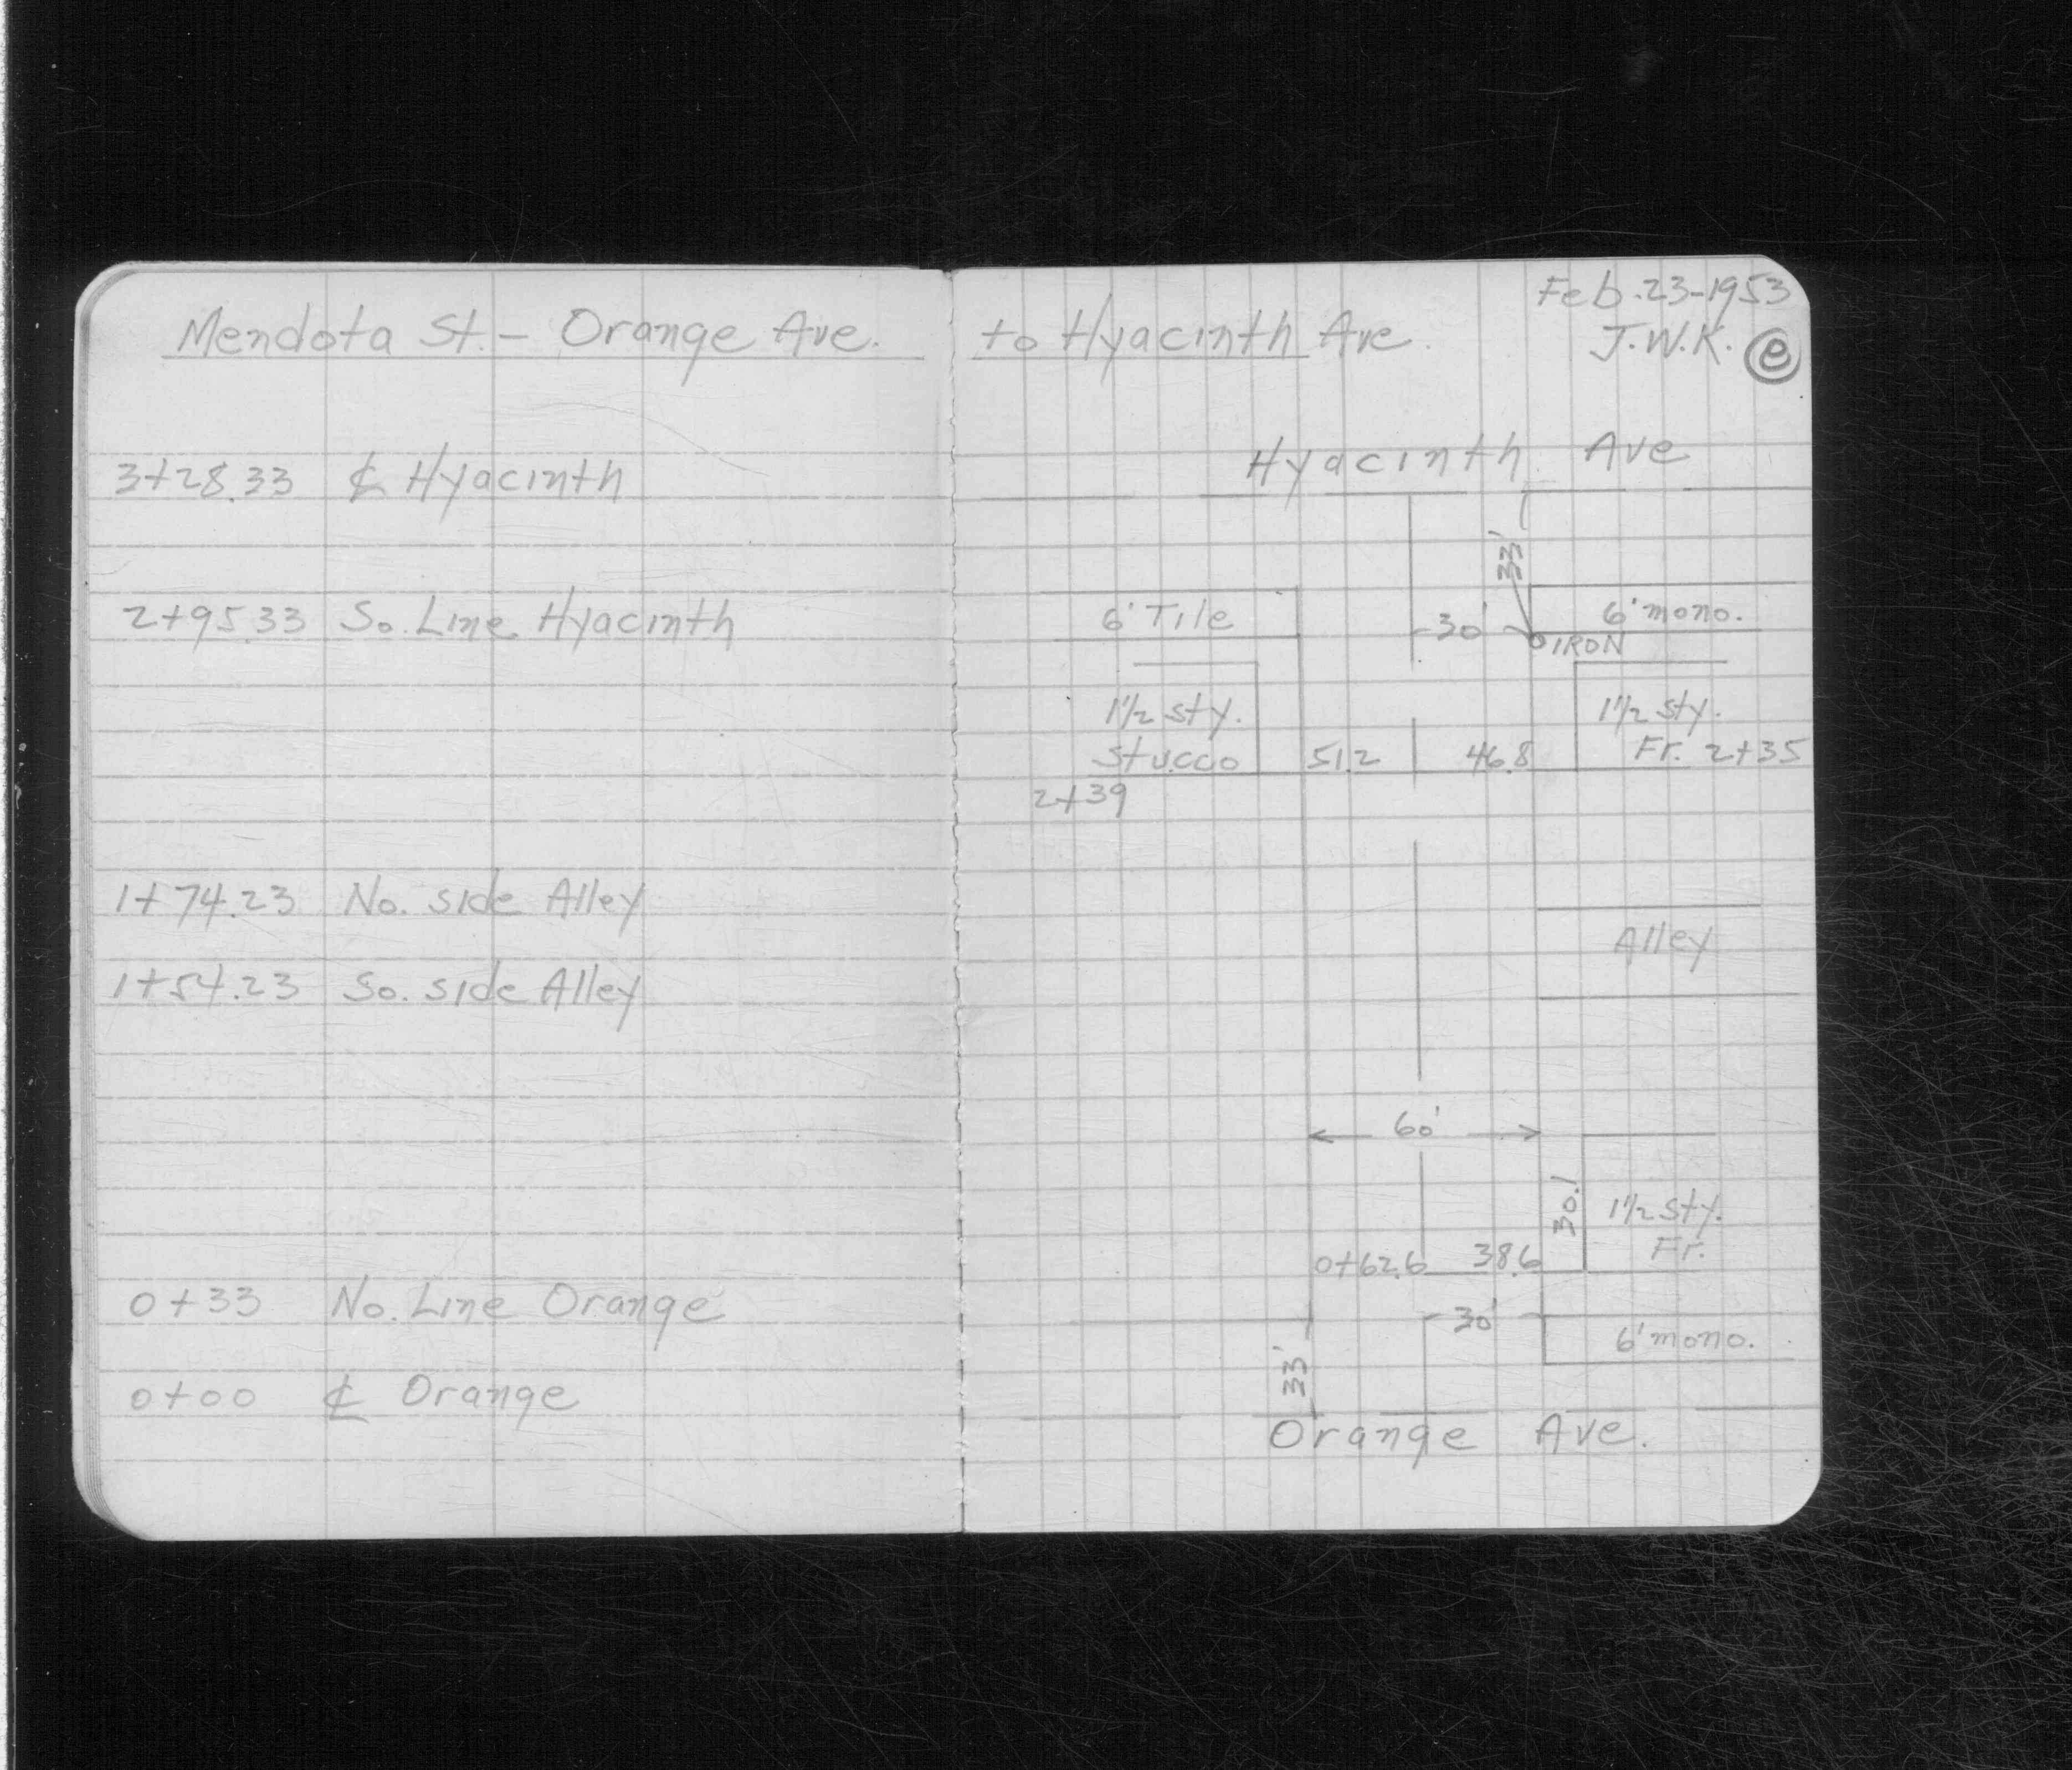 Mendota St. – Orange Ave. to Hyacinth Ave.
Feb. 23-1953
J.W.K. e
3+28.33 ℄ Hyacinth
2+95.33 So. Line Hyacinth
1+74.23 No. side Alley
1+54.23 So. side Alley
0+33 No. Line Orange
0+00 ℄ Orange
Hyacinth Ave
33'
6' Tile 30' 6' mono.
IRON
1½ sty. 1½ sty.
Stucco 51.2 46.8 Fr. 2+35
2+39
Alley
60'
30.1 1½ sty.
Fr.
0+62.6 38.6
30' 6' mono.
33'
Orange Ave.